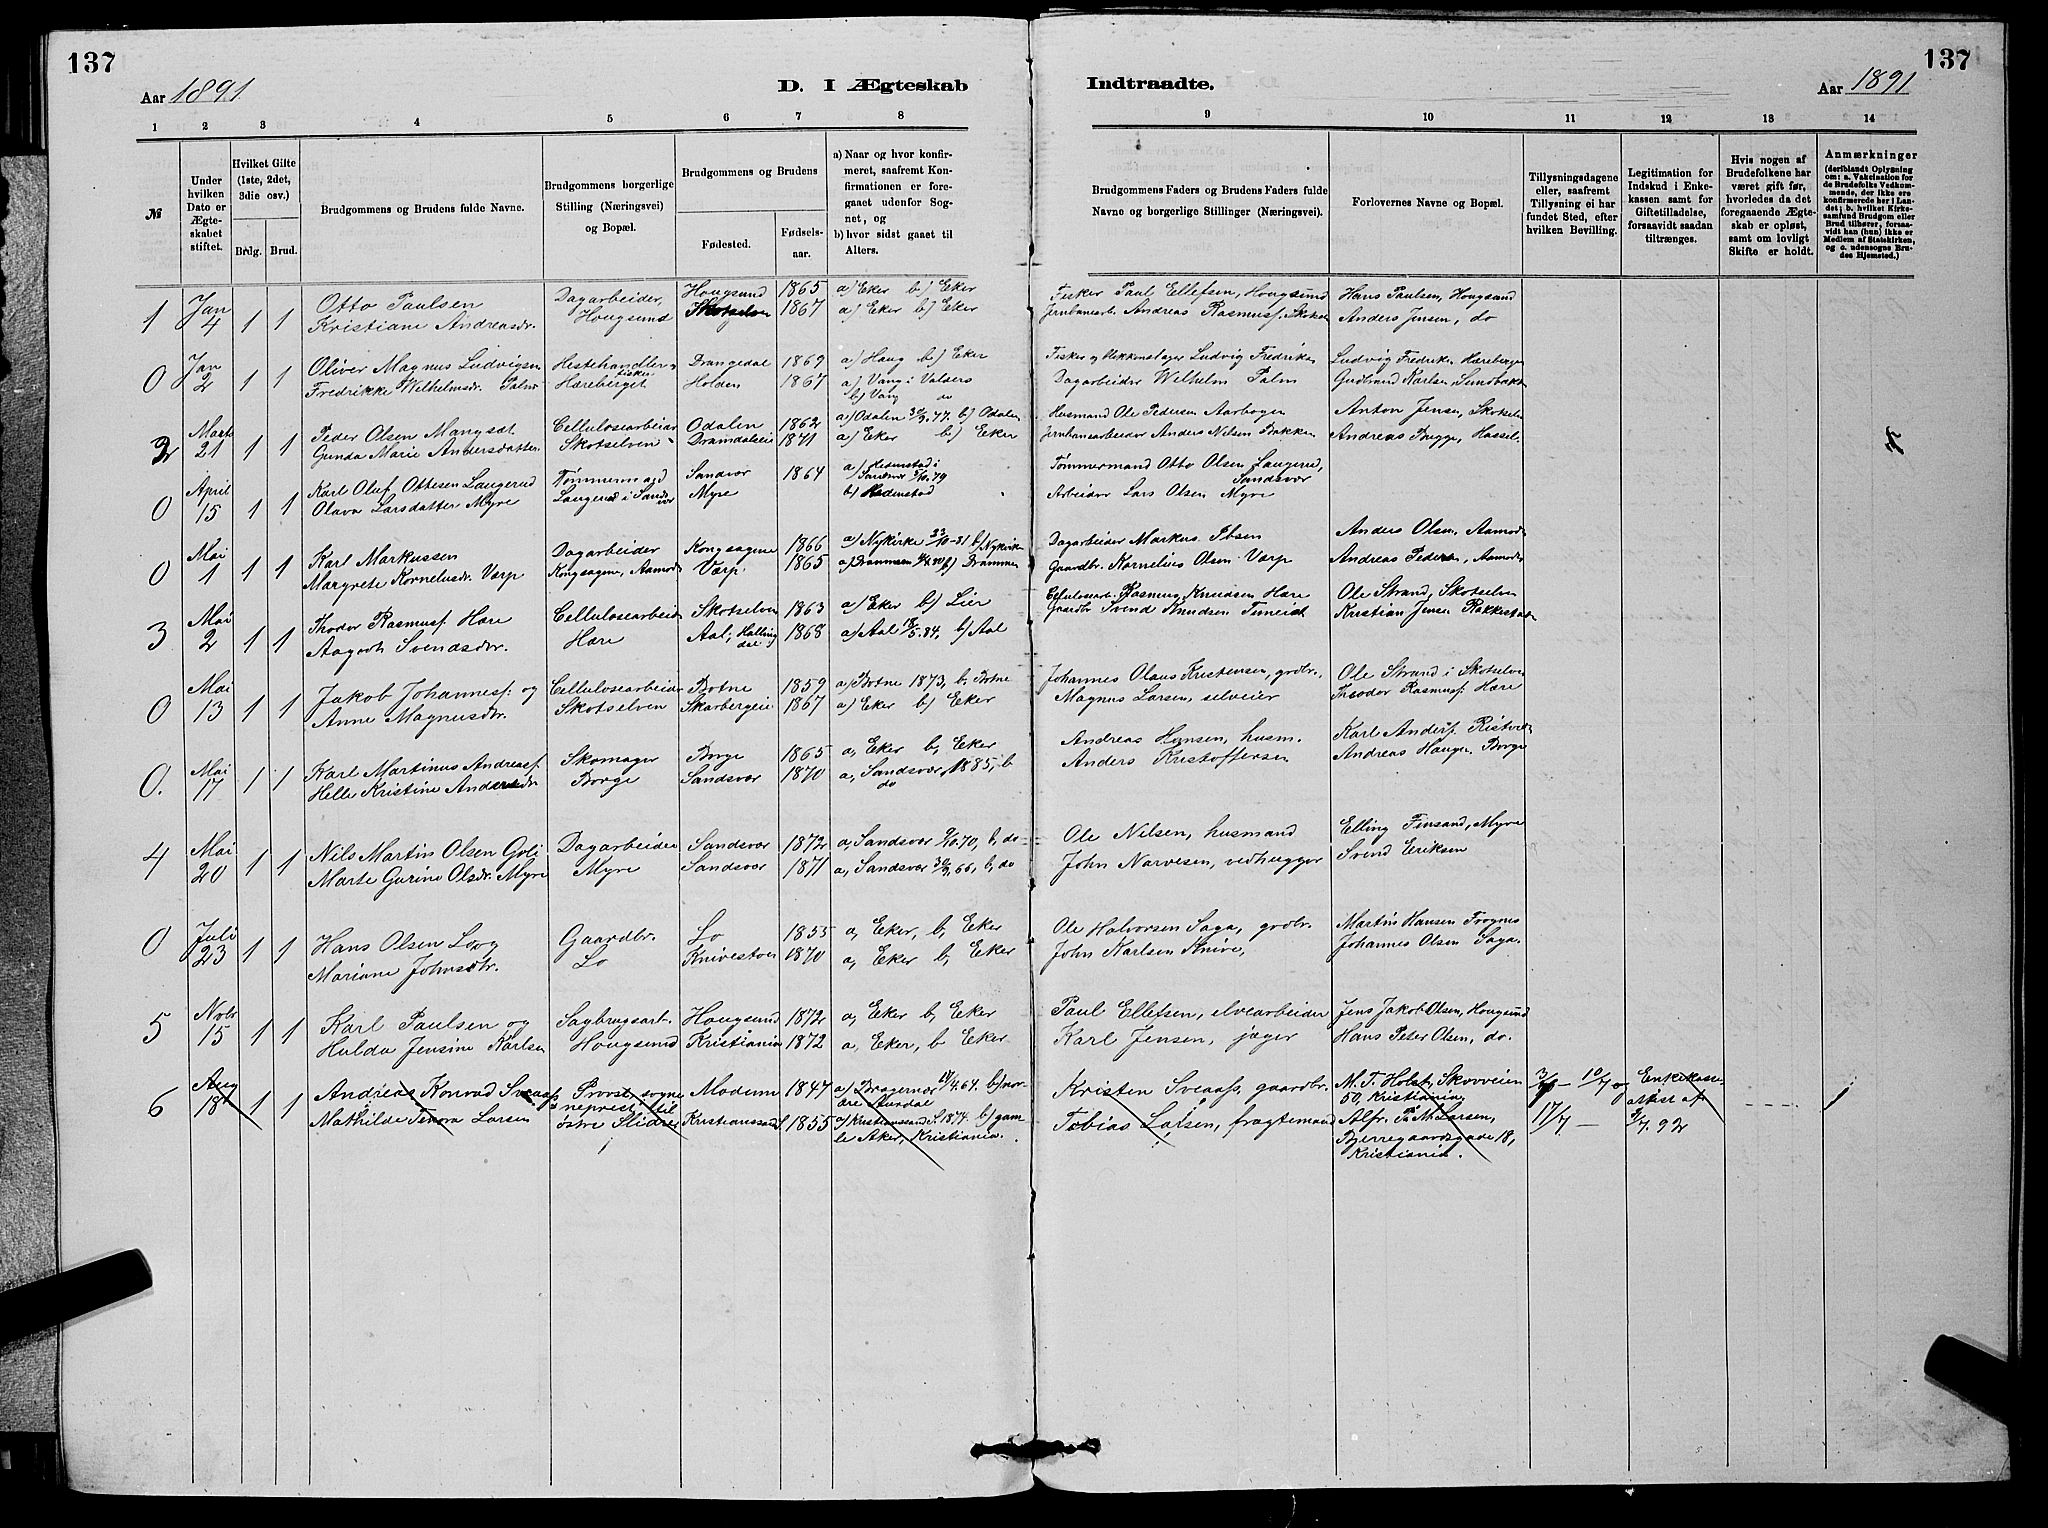 137
Aar 1891.
D. I Ægteskab
Indtraadte.
Aar 1891
137
1 2 3 4 5 6 7 8
9 10 11 12 13 14
№
Under hvilken Dato er Ægteskabet stiftet.
Hvilket Gifte (1ste, 2det, 3die osv.)
Brdg. Brud.
Brudgommens og Brudens fulde Navne.
Brudgommens borgerlige Stilling (Næringsvei) og Bopæl.
Brudgommens og Brudens
Fødested. Fødselsaar.
a) Naar og hvor konfirmeret, saafremt Konfirmationen er foregaaet udenfor Sognet, og
b) hvor sidst gaaet til Alters.
Brudgommens Faders og Brudens Faders fulde Navne og borgerlige Stillinger (Næringsvei).
Forlovernes Navne og Bopæl.
Tillysningsdagene eller, saafremt Tillysning ei har fundet Sted, efter hvilken Bevilling.
Legitimation for Indskud i Enkekassen samt for Giftetilladelse, forsaavidt saadan tiltrænges.
Hvis nogen af Brudefolkene har været gift før, hvorledes da det foregaaende Ægteskab er opløst, samt om lovligt Skifte er holdt.
Anmærkninger (deriblandt Oplysning om: a. Vakcination for de Brudefolks Vedkommende, der ikke ere konfirmerede her i Landet; b. hvilket Kirkesamfund Brudgom eller Brud tilhører, forsaavidt han (hun) ikke er Medlem af Statskirken, og c. udensogns Brudes Hjemsted.)
1 Jan 4 1 1 Otto Paulsen Dagarbeider, Hougsund 1865 a) Eker b) Eker Fisker Paul Ellefsen, Hougsund Hans Paulsen, Hougsund
Kristiane Andreasdr. Hougsund Skotselven 1867 a) Eker b) Eker Jernbanearb. Andreas Rasmuss. Skotselv Anders Jensen, do
0 Jan 2 1 1 Oliver Magnus Ludvigsen Hestehandler og fisker Drangedal 1869 a) Haug b) Eker Fisker og blikkenslager Ludvig Fredriksen Ludvig Fredriksen Hæreberget
Fredrikke Wilhelmsdr. Palm Hæreberget Holden 1867 a) Vang i Valders b) Vang do Dagarbeider Wilhelm Palm Gudbrand Karlsen, Sundbakken
2 Marts 21 1 1 Peder Olsen Mangset Cellulosearbeider Odalen 1862 a) Odalen 30/9. 77. b) Odalen Husmand Ole Pedersen Aarbogen Anton Jensen, Skotselv
Gunda Marie Andersdatter Skotselven Dramdalseie 1871 a) Eker b) Eker Jernbanearbeider Anders Nilsen Bakken Andreas Bugge, Hassel.
0 April 15 1 1 Karl Oluf Ottesen Laugerud Tømmermand Sandsvær 1864 a) Hedenstad i Sandsvær 5/10. 79 b) Hedenstad Tømmermand Otto Olsen Laugerud, Sandsvær
Olava Larsdatter Myre Laugerud i Sandsvær Myre Arbeider Lars Olsen Myre
0 Mai 1 1 1 Karl Markussen Dagarbeider Kongsagene 1866 a) Nykirke 23/10-81 b) Nykirke Dagarbeider Markus Ibsen Anders Olsen, Aamodt
Margrete Kornelusdr. Værp Kongsagene, Aamodt Værp 1865 b) Drammen Gaardbr. Kornelius Olsen Værp Andreas Pedersen, Aamodt
3 Mai 2 1 1 Thodor Rasmuss. Hære Cellulosearbeider Skotselven 1863 a) Eker b) Lier Cellulosearb. Rasmus Knudsen Hære Ole Strand, Skotselven
Aagoth Svendsdtr. Hære Aal, Hallingdal 1868 a) Aal 18/5. 84, b) Aal Gaardbr Svend Knudsen Timeidt Kristian Jensen Rakkestad
0 Mai 13 1 1 Jakob Johanness. og Cellulosearbeider Botne 1859 a) Botne 1873, b. Botne Johannes Olaus Kristensen, grdbr. Ole Strand i Skotselven
Anne Magnusdr. Skotselven Skarbergeie 1867 a) Eker b) Eker Magnus Larsen, selveier Theodor Rasmuss. Hære
0. Mai 17 1 1 Karl Martinus Andreass. Skomager Borge 1865 a, Eker b, Eker Andreas Hansen, husm. Karl Anders. Ristvedt
Helle Kristine Andersdr Borge Sandsvær 1870 a, Sandsvær, 1885, b do Anders Kristoffersen Andreas Haugen Borge
4 Mai 20 1 1 Nils Martin Olsen Dagarbeider Sandsvær 1872 a, Sandsvær 9/10. 70, b, do Ole Nilsen, husmand Elling Finsand, Myre
Marte Gurine Olsdr. Myre Myre Sandsvær 1871 a, Sandsvær 30/9. 66, b, do John Narvesen, vedhugger Svend Eriksen
0 Juli 23 1 1 Hans Olsen Lo og Gaardbr. Lo 1855 a, Eker, b, Eker Ole Halvorsen Saga, grdbr. Martin Hansen Frognes
Mariane Johnsdtr. Lo Knivestøen 1870 a, Eker b, Eker John Karlsen Knive, Johannes Olsen Saga.
5 Nobr 15 1 1 Karl Paulsen og Sagbrugsarb. Hougsund 1872 a, Eker b, Eker Paul Ellefsen, elvearbeider Jens Jakob Olsen, Hougsund
Hulda Jensine Karlsen Hougsund Kristiania 1872 a, Eker, b, Eker Karl Jensen, jæger Hans Peter Olsen, do.
6 Aug 18 1 1 Andreas Konrad Sveaass Provst, sognepræst til Modum 1847 a) Bragernæs 17/4. 64. b) nordre Aurdal Kristen Sveaass. gaardbr. M. T. Holst, Skovveien 50, Kristiania 3/7 - 10/7 og Enkekasseattest af
Mathilde Tenora Larsen østre Slidre Kristianssand S. 1855 a) Kristianssand S. 1874. b) gamle Aker, Kristiania. Tobias Larsen, fragtemand Alfr. P. M. Larsen, Bjerregaardsgade 18, Kristiania. 17/7 - 2/7. 92